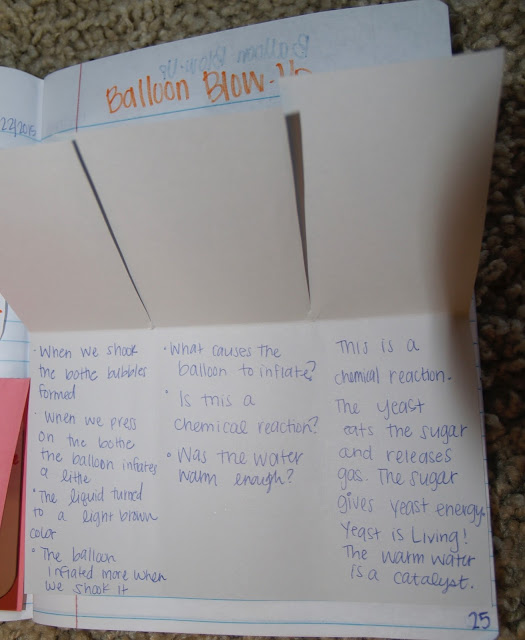 Balloon Blow-Up
Balloon Blow-Up
22/2015
· When we shook
the bottle bubbles
formed
· When we press
on the bottle
the balloon inflates
a little
• The liquid turned
to a light brown
color
• The balloon
inflated more when
we shook it
• What causes the
balloon to inflate?
• Is this a
chemical reaction?
• Was the water
warm enough?
This is a
chemical reaction.
The yeast
eats the sugar
and releases
gas. The sugar
gives yeast energy
Yeast is Living!
The warm water
is a catalyst.
25